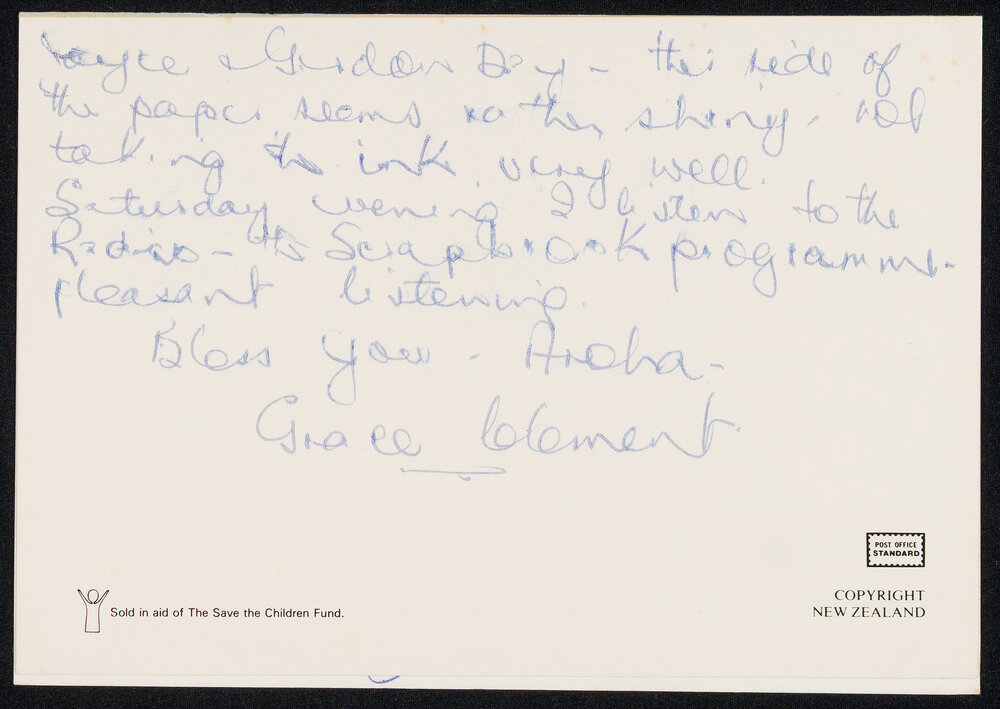 Joyce & Gordon Day - this side of
the paper seems rather shiny, not
taking the ink very well.
Saturday evening I listen to the
Radio - the Scrapbook programme -
pleasant listening.
Bless you - Aroha -
Grace Clement
POST OFFICE
STANDARD
Sold in aid of The Save the Children Fund.
COPYRIGHT
NEW ZEALAND